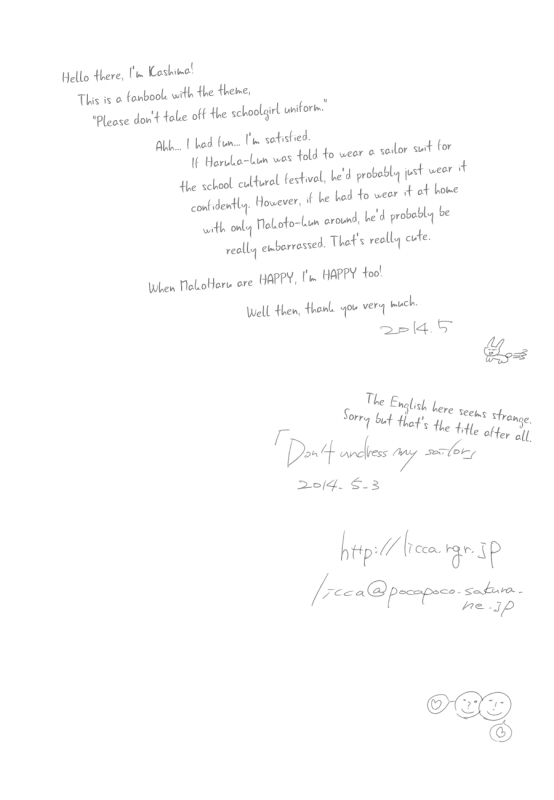 Hello there, I'm Kashima!
This is a fanbook with the theme,
"Please don't take off the schoolgirl uniform."
Ahh... I had fun... I'm satisfied.
If Haruka-kun was told to wear a sailor suit for
the school cultural festival, he'd probably just wear it
confidently. However, if he had to wear it at home
with only Makoto-kun around, he'd probably be
really embarrassed. That's really cute.
When MakoHaru are HAPPY, I'm HAPPY too!
Well then, thank you very much.
2014.5
The English here seems strange.
Sorry but that's the title after all.
「Don't undress my sailor」
2014-5-3
http://licca.rgr.jp
licca@pocapoco.sakura.
ne.jp